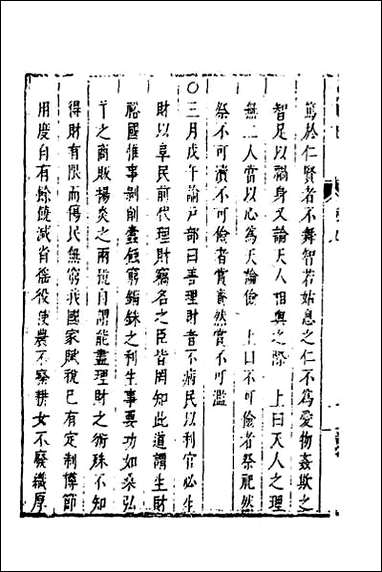 篤於仁賢者不舞智若姑息之仁不爲愛物姦欺之
智足以禍身又論天人相與之際　上曰天人之理
無二人當以心爲天論儉　上曰不可儉者祭祀然
祭不可瀆不可儉者賞賚然賞不可濫
○三月戊午諭戶部曰善理財者不病民以利官必生
財以阜民前代理財竊名之臣皆罔知此道謂生財
裕國惟事剝削蠹蝕窮錙銖之利生事要功如桑弘
羊之商販楊炎之兩稅自謂能盡理財之術殊不知
得財有限而傷民無窮我國家賦稅已有定制撙節
用度自有餘饒減省徭役使農不廢耕女不廢織厚